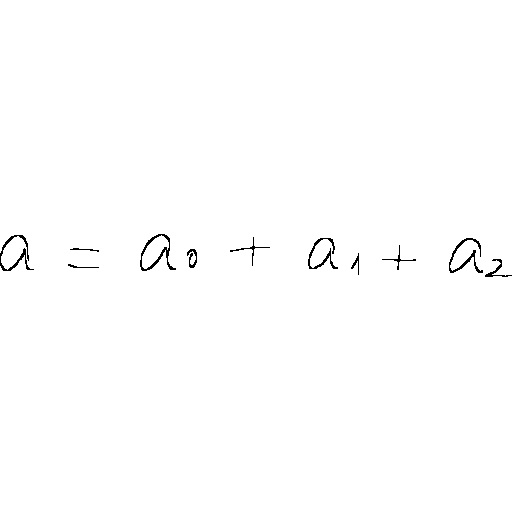 a = a₀ + a₁ + a₂